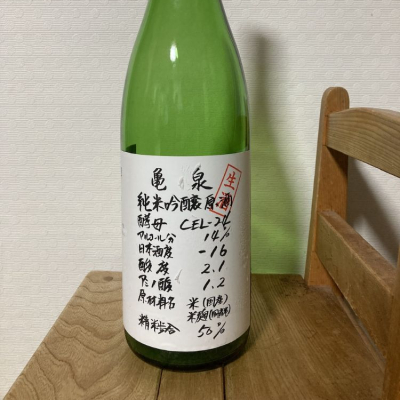 亀泉
生酒
純米吟醸原酒
酵母 CEL-24
アルコール分 14%
日本酒度 -16
酸度 2.1
アミノ酸 1.2
原材料名 米(国産)
米麹(国産米)
精米歩合 50%